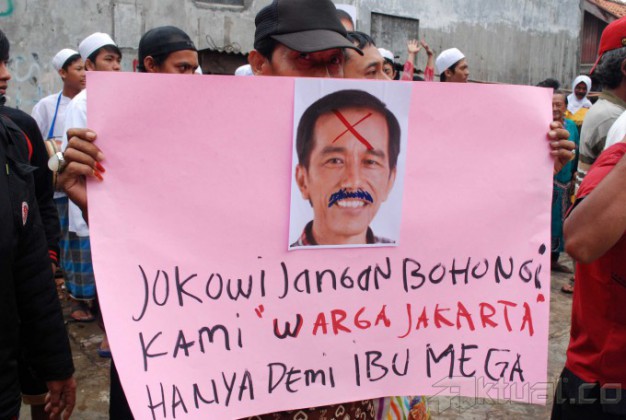 JOKOWI JANGAN BOHONGI
KAMI "WARGA JAKARTA"
HANYA DEMI IBU MEGA
Aktual.co